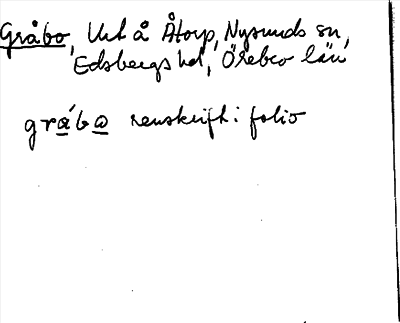 Gråbo, Uht å Åtorp, Nysunds sn,
Edsbergs hd, Örebro län
gråbω renskrift i folio